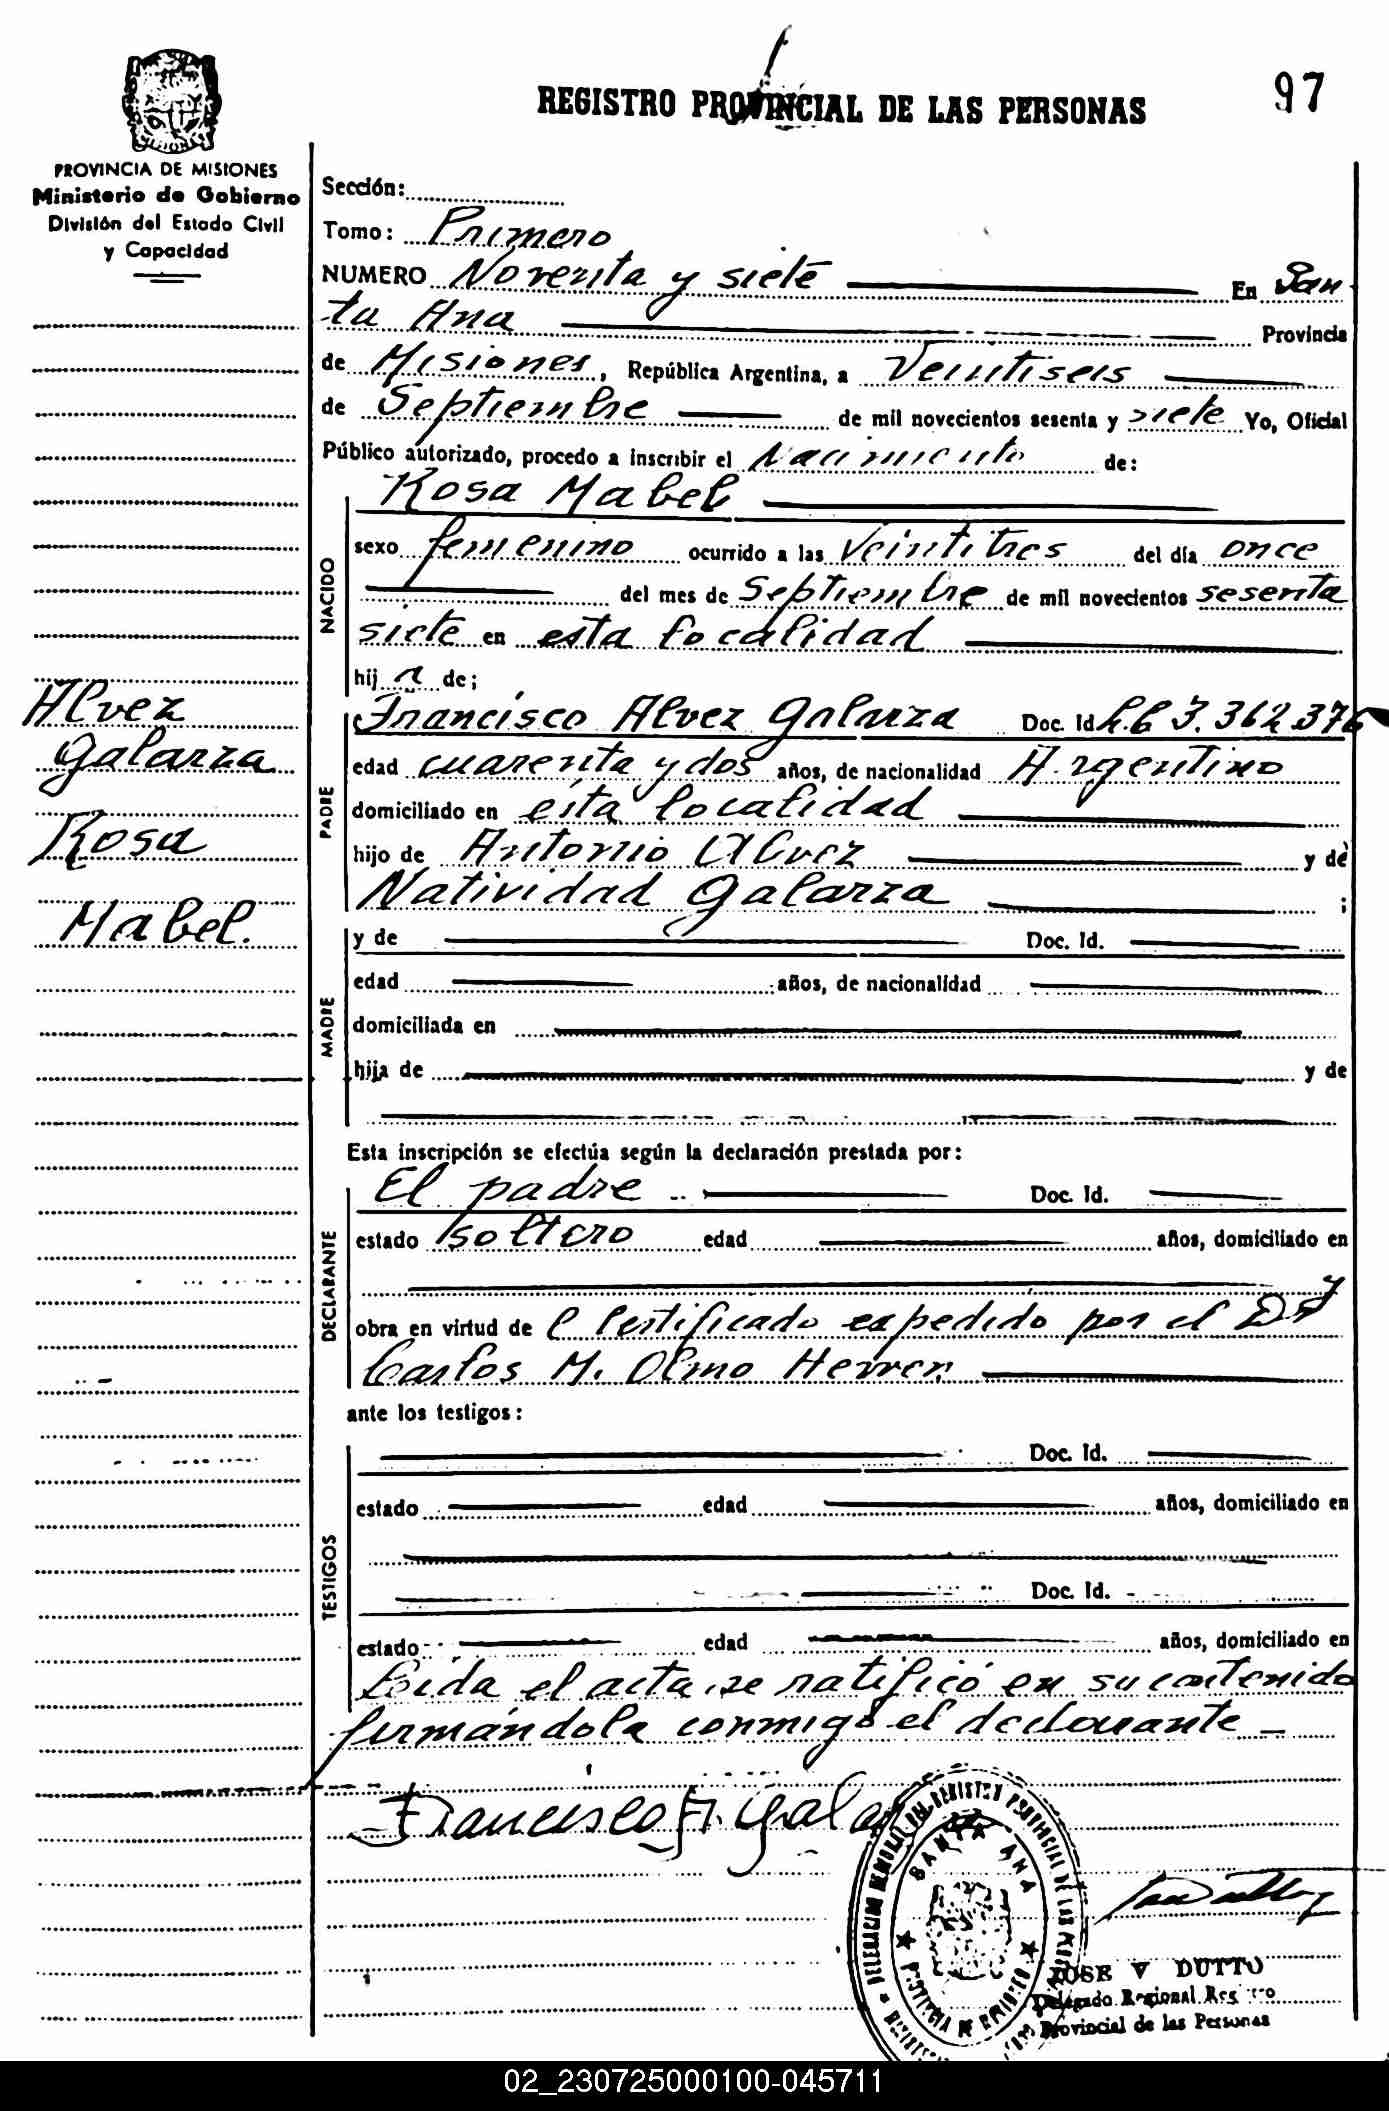 REGISTRO PROVINCIAL DE LAS PERSONAS
97
PROVINCIA DE MISIONES
Ministerio de Gobierno
División del Estado Civil
y Capacidad
Sección:
Tomo: Primero
NUMERO Noventa y siete En San
ta Ana Provincia
de Misiones, República Argentina, a Veintiseis
de Septiembre de mil novecientos sesenta y siete Yo, Oficial
Público autorizado, procedo a inscribir el Nacimiento de:
Rosa Mabel
NACIDO
sexo femenino ocurrido a las Veintitres del día once
del mes de Septiembre de mil novecientos sesenta
siete en esta localidad
hij a de;
Alvez
Galarza
Rosa
Mabel.
PADRE
Francisco Alvez Galarza Doc. Id L.E 3.362.376
edad cuarenta y dos años, de nacionalidad Argentino
domiciliado en esta localidad
hijo de Antonio Alvez y de
Natividad Galarza ;
MADRE
y de Doc. Id.
edad años, de nacionalidad
domiciliada en
hija de y de
Esta inscripción se efectúa según la declaración prestada por:
DECLARANTE
El padre Doc. Id.
estado soltero edad años, domiciliado en
y
obra en virtud de l Certificado expedido por el Dr
Carlos M. Olmo Herrera
ante los testigos:
TESTIGOS
Doc. Id.
estado edad años, domiciliado en
Doc. Id.
estado edad años, domiciliado en
Leida el acta, se ratificó en su contenido
firmándola conmigo el declarante
Francisco A. Galarza
DELEGACION REGIONAL DEL REGISTRO PROVINCIAL DE LAS PERSONAS
SANTA ANA
PROVINCIA DE MISIONES
JOSE V DUTTO
Delegado Regional Registro
Provincial de las Personas
02_230725000100-045711